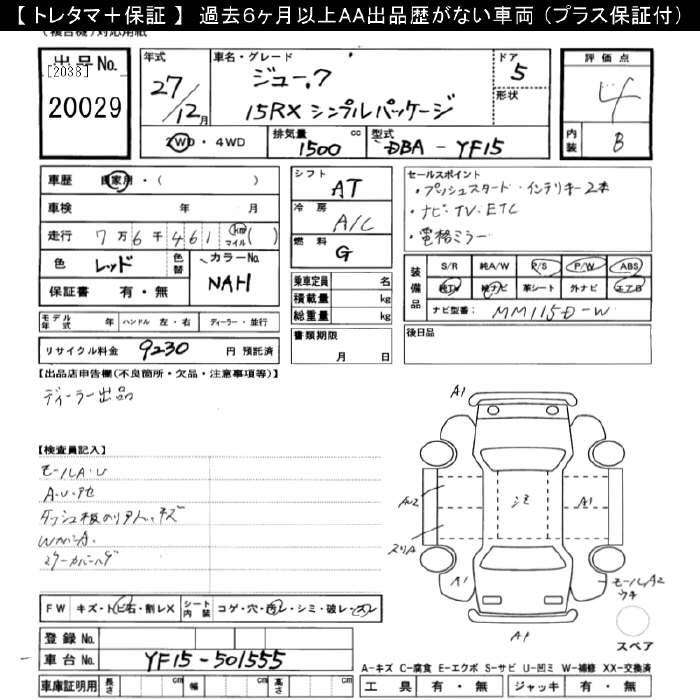 【 トレタマ＋保証 】 過去6ヶ月以上AA出品歴がない車両（プラス保証付）
出品No.
[2038]
20029
年式
27/12月
車名・グレード
ジューク
15RX シンプルパッケージ
ドア
5
形状
評価点
4
内装
B
2WD・4WD
排気量
1500 cc
型式
DBA - YF15
車歴 自家用・( )
車検 年 月
走行 7万6千461 (km マイル)( )
色 レッド
色替
カラーNo.
NAH
保証書 有・無
モデル年式 年 ハンドル 左・右 ディーラー・並行
リサイクル料金 9230 円 預託済
シフト
AT
冷房
A/C
燃料
G
乗車定員 名
積載量 kg
総重量 kg
書類期限
月 日
セールスポイント
・プッシュスタート・インテリキー2本
・ナビ・TV・ETC
・電格ミラー
装備品
S/R 純A/W P/S P/W ABS
純TV 純ナビ 革シート 外ナビ エアB
ナビ型番: MM115D-W
後日品
【出品店申告欄(不良箇所・欠品・注意事項等)】
ディーラー出品
【検査員記入】
モールA・U
A・U・他
WハンA.
A1
シミ
A1
A1
モールA2
ウキ
A1
スペア
FW キズ・トビ石・割レX シート内装 コゲ・穴・汚レ・シミ・破レ・スレ
登録No.
車台No. YF15-501555
車庫証明用 長さ cm 幅 cm 高さ cm
A-キズ C-腐食 E-エクボ S-サビ U-凹ミ W-補修 XX-交換済
工具 有・無 ジャッキ 有・無